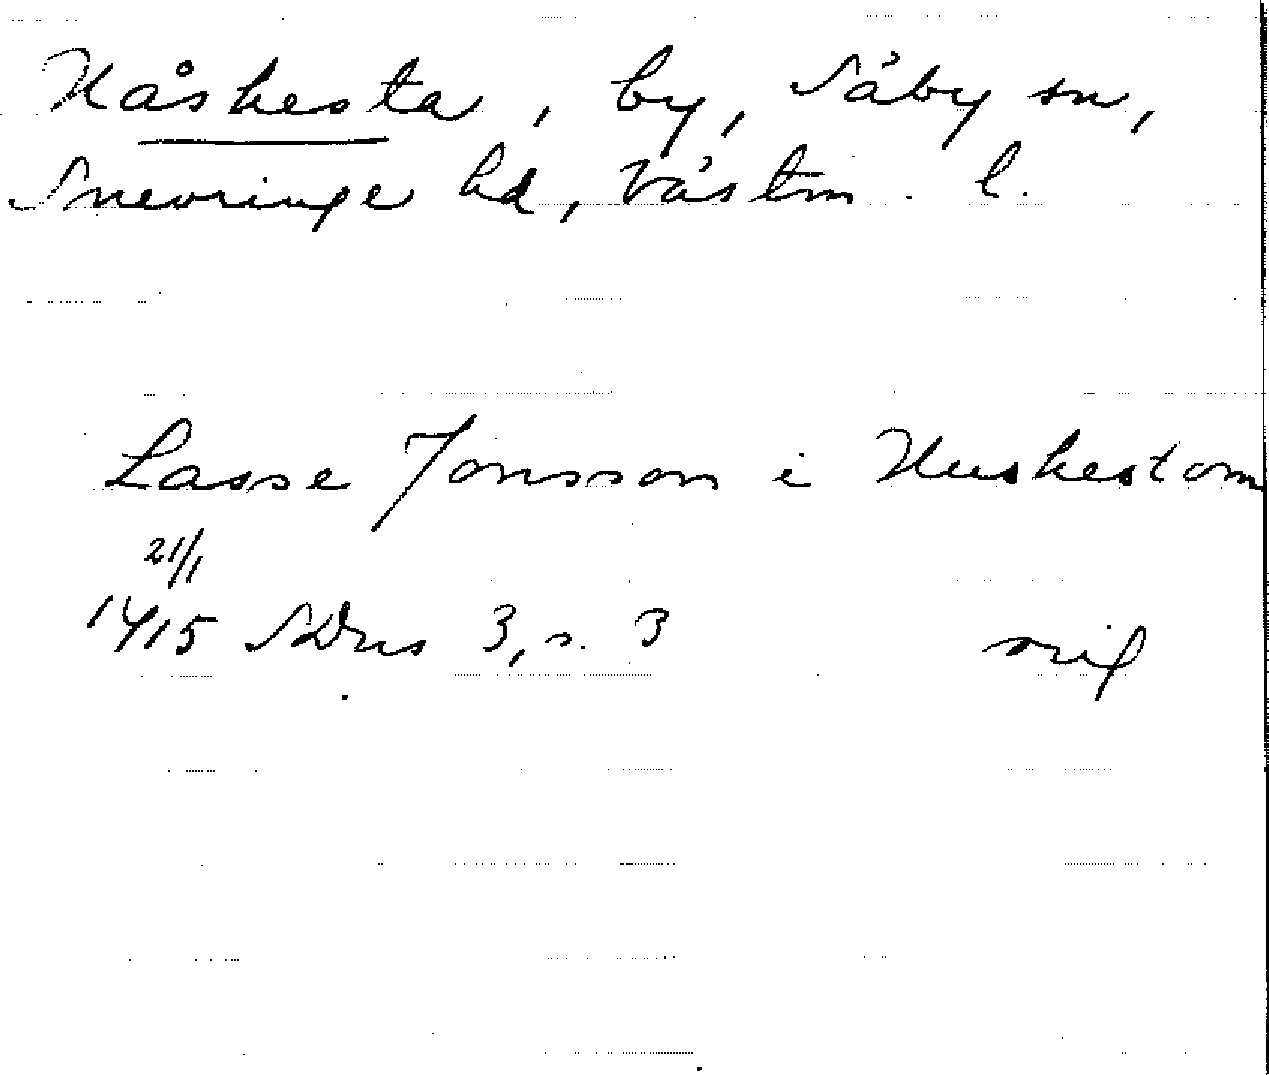 Nåskesta, by, Säby sn,
Snevringe hd, Västm. l.
Lasse Jonsson i Nuskestom
21/1
1415 SDns 3, s. 3 orig